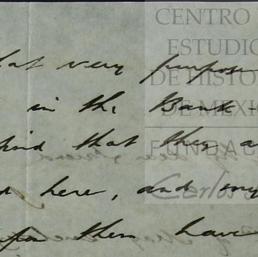 that very purpose
in the Bank
that they a
here, and my
upon them have
CENTRO
ESTUDIO
DE HISTO
DE MEXIC
FUNDA
Carlos